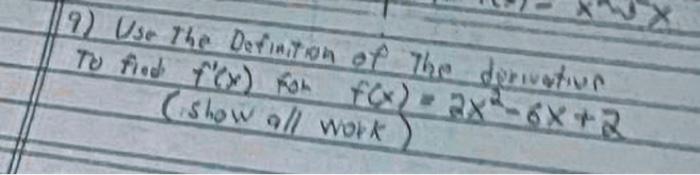 9) Use The Definition of The derivative
To find f'(x) for f(x) = 2x²-6x+2
(show all work)